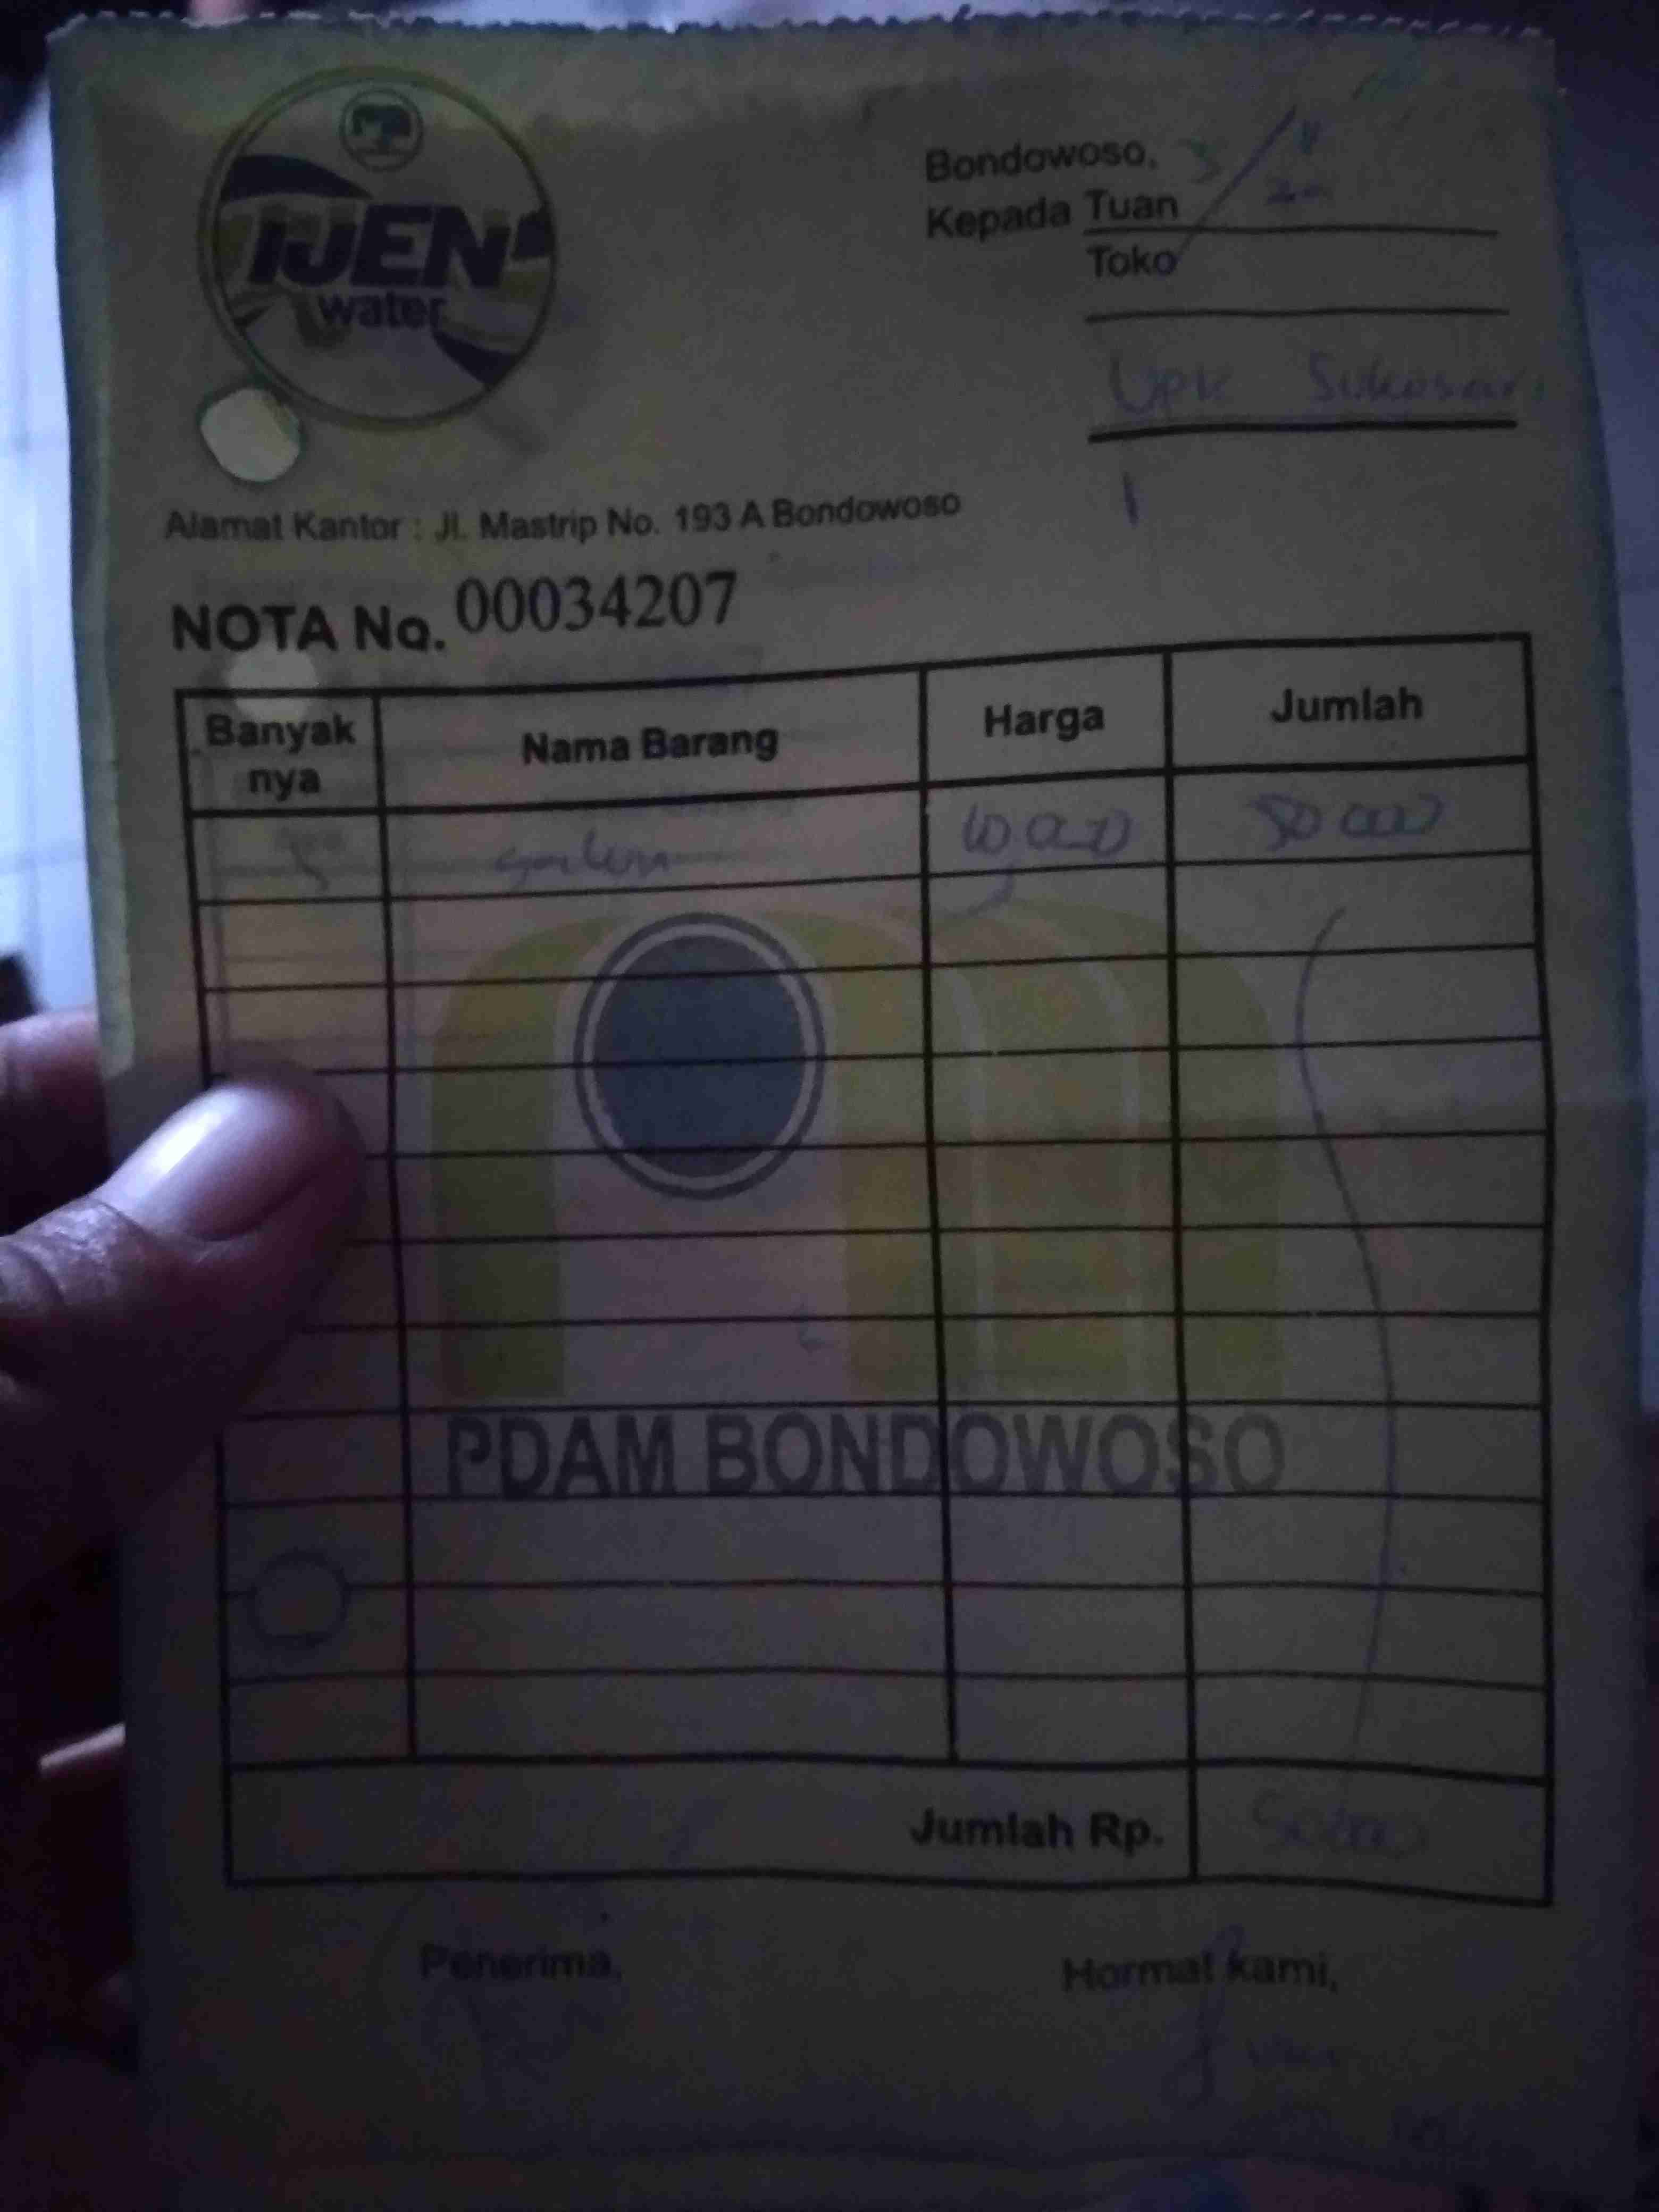 IJEN
water
Bondowoso, 3/
Kepada Tuan
Toko
Upk Sukosari
Alamat Kantor : Jl. Mastrip No. 193 A Bondowoso
NOTA No. 00034207
Banyak nya Nama Barang Harga Jumlah
5 galon 10.000 50 000
PDAM BONDOWOSO
Jumlah Rp. 50.000
Penerima, Hormat kami,